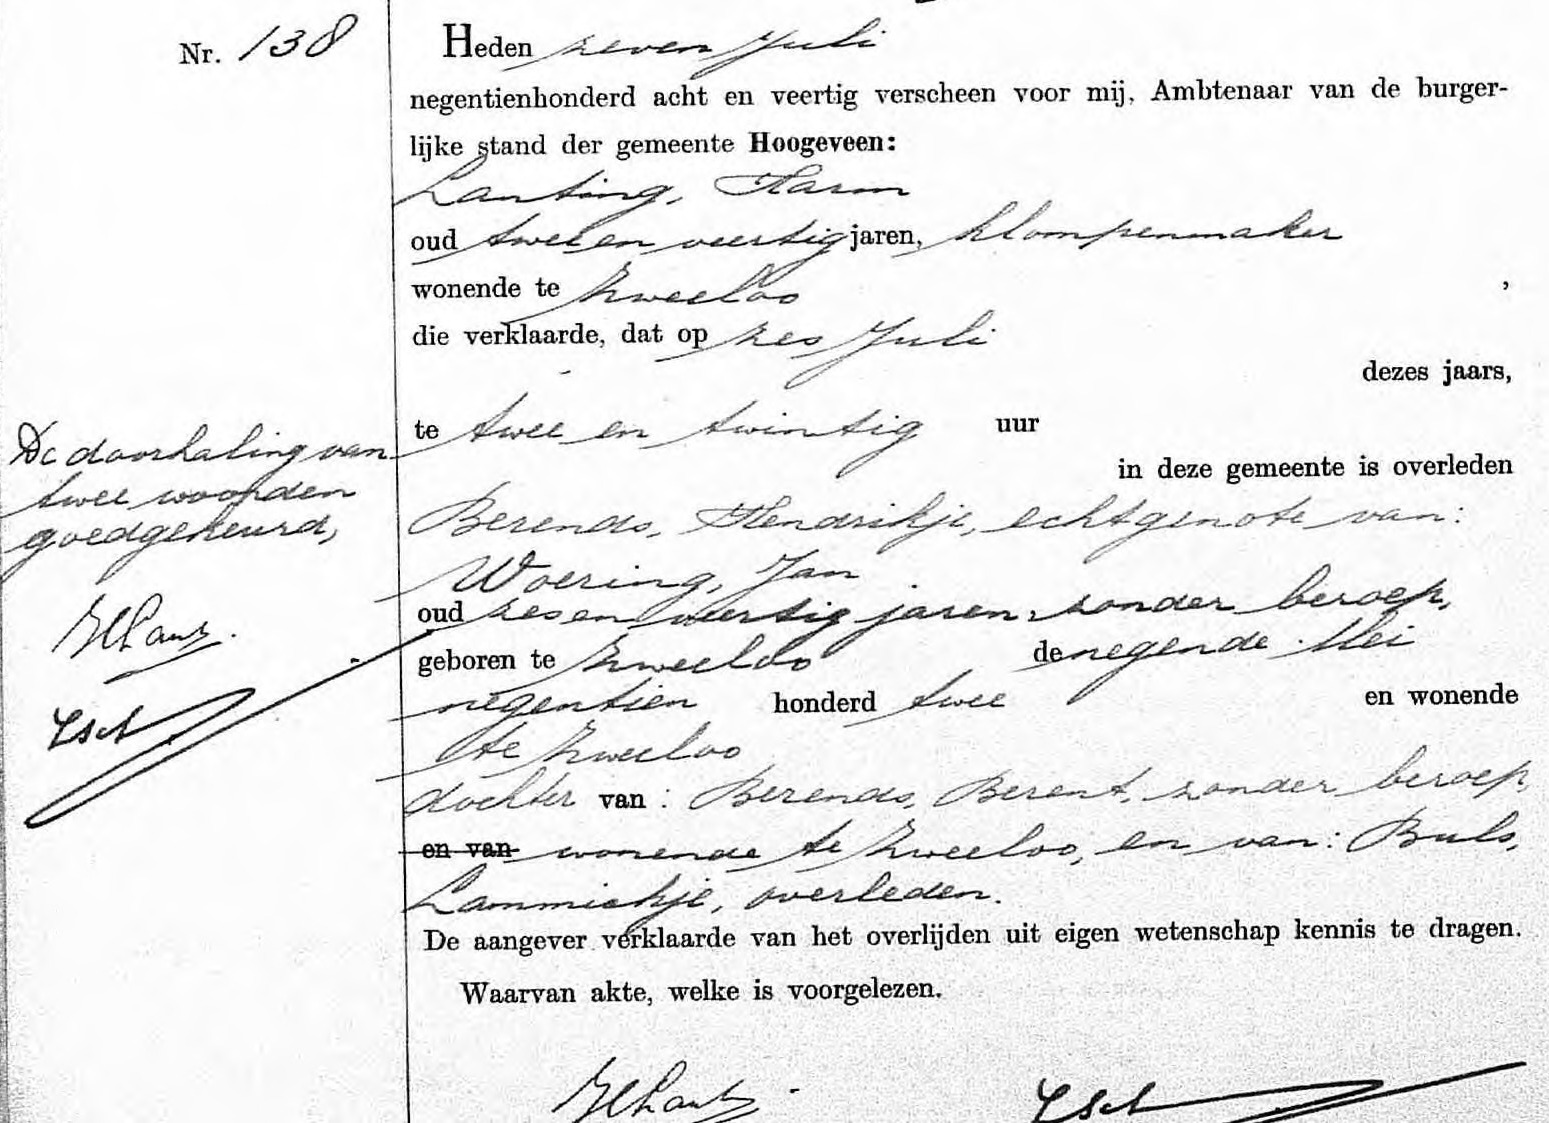 Nr. 138
Heden zeven Juli
negentienhonderd acht en veertig verscheen voor mij, Ambtenaar van de burger-
lijke stand der gemeente Hoogeveen:
Lanting, Harm
oud twee en veertig jaren, klompenmaker
wonende te Zweeloo ,
die verklaarde, dat op zes Juli
dezes jaars,
te twee en twintig uur
in deze gemeente is overleden
Berends, Hendrikje, echtgenote van:
Woering, Jan
oud zes en veertig jaren, zonder beroep,
geboren te Zweeloo de negende Mei
negentien honderd twee en wonende
te Zweeloo
dochter van : Berends, Berent, zonder beroep,
en van wonende te Zweeloo, en van: Buls,
Lammichje, overleden.
De aangever verklaarde van het overlijden uit eigen wetenschap kennis te dragen.
Waarvan akte, welke is voorgelezen.
De doorhaling van
twee woorden
goedgekeurd,